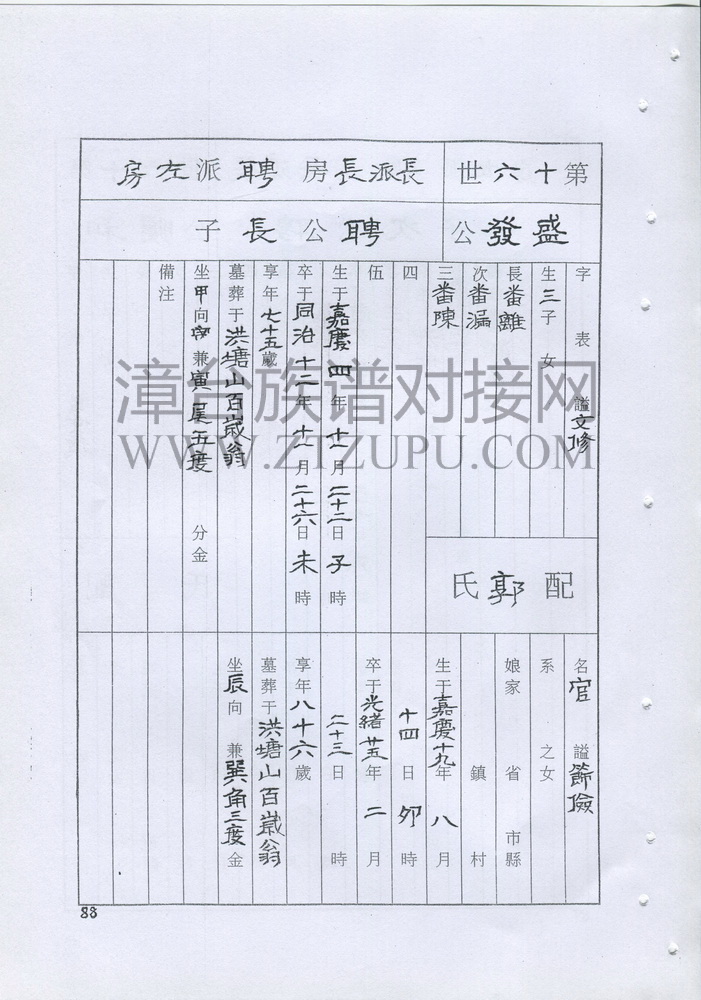 第十六世 長派長房 聘派左房
盛發公 聘公長子
字 表 諡文修
生三子 女
長番離
次番漏
三番陳
四
伍
生于嘉慶四年十一月二十二日子時
卒于同治十二年十一月二十六日未時
享年七十五歲
墓葬于洪塘山百歲翁
坐甲向 兼寅 五度 分金
備注
配郭氏
名官 諡節儉
系 之女
娘家 省 市縣
鎮 村
生于嘉慶十九年八月
十四日卯時
卒于光緒廿五年二月
二十三日 時
享年八十六歲
墓葬于洪塘山百歲翁
坐辰向 兼巽角三度金
88
漳台族谱对接网
WWW.ZTZUPU.COM